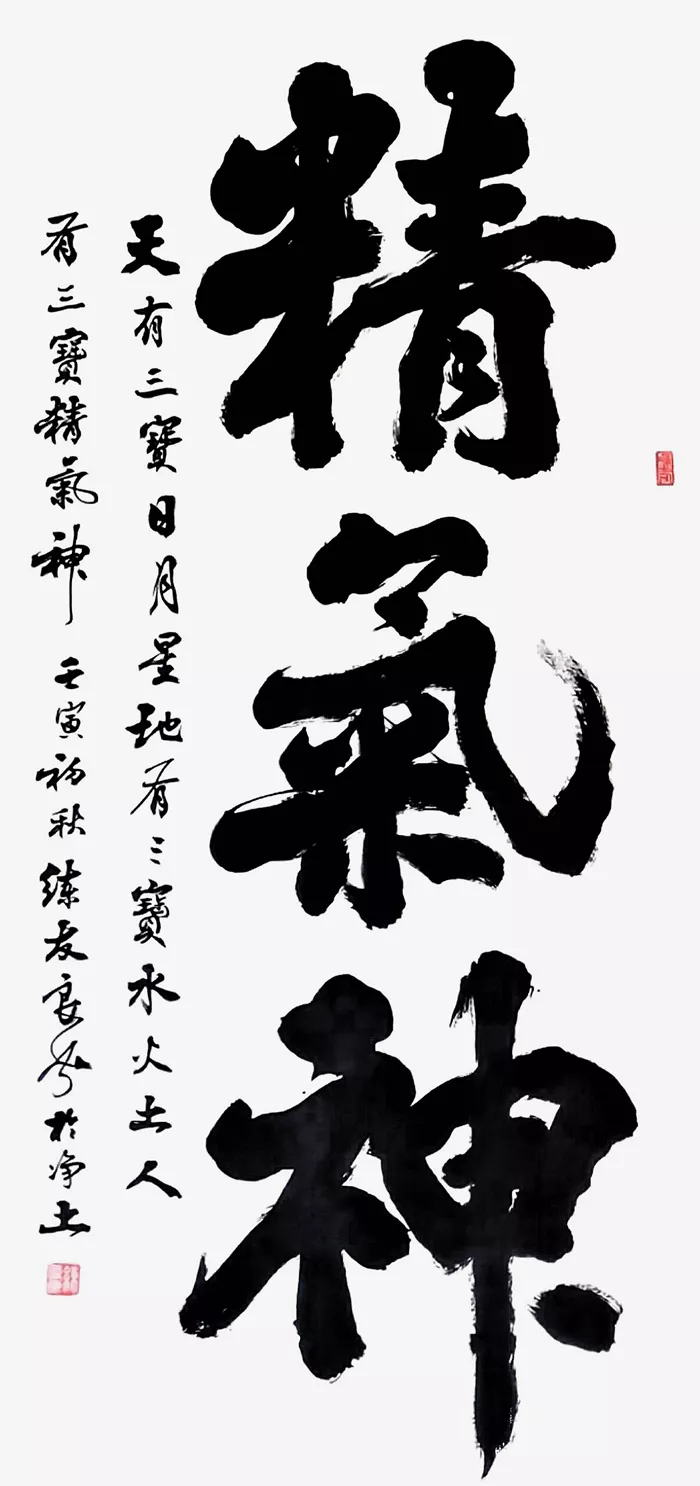 精氣神
天有三寶日月星地有三寶水火土人
有三寶精氣神 壬寅初秋練友良書於净土